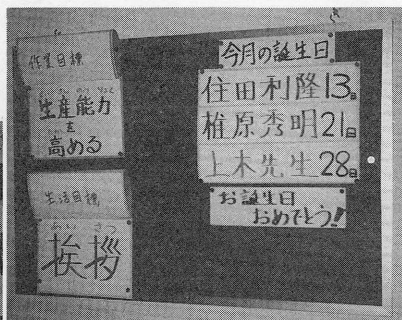 作業目標
生産能力
を
高める
生活目標
あい さつ
挨拶
今月の誕生日
住田利隆13日
椎原秀明21日
上木先生28日
お誕生日
おめでとう!!